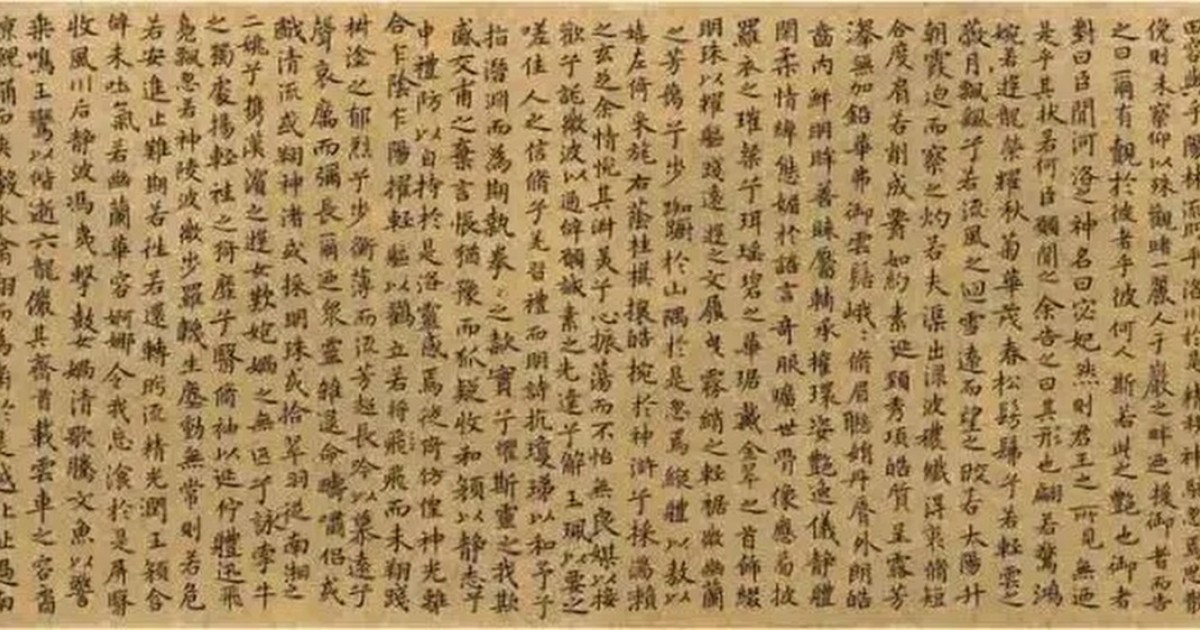 俛則未察仰以殊觀睹一麗人于巖之畔迺援御者而告
之曰爾有覿於彼者乎彼何人斯若此之艷也御者
對曰臣聞河洛之神名曰宓妃然則君王之所見無迺
是乎其狀若何臣願聞之余告之曰其形也翩若驚鴻
婉若遊龍榮耀秋菊華茂春松髣髴乎若輕雲之
蔽月飄飖乎若流風之回雪遠而望之皎若太陽升
朝霞迫而察之灼若夫渠出淥波穠纖得衷脩短
合度肩若削成如約素延頸秀項皓質呈露芳
澤無加鉛華弗御雲髻峨〻脩眉聯娟丹脣外朗皓
齒內鮮明眸善睞靨輔承權環姿艷逸儀靜體
閑柔情綽態媚於語言奇服曠世骨像應圖披
羅衣之璀粲兮珥瑤碧之華琚戴金翠之首飾綴
明珠以耀軀踐遠遊之文履曳霧綃之輕裾微幽蘭
之芳藹兮步踟躕於山隅於是忽焉縱體以遨以
嬉左倚采旄右蔭桂旗攘皓腕於神滸兮採湍瀨
之玄芝余情悅其淑美兮心振蕩而不怡無良媒以接
歡兮託微波以通辭願誠素之先達兮解玉珮以要之
嗟佳人之信脩兮羌習禮而明詩抗瓊珶以和予兮
指潛淵而為期執拳〻之款實兮懼斯靈之我欺
感交甫之棄言悵猶豫而狐疑收和顏以靜志兮
申禮防以自持於是洛靈感焉徙倚仿徨神光離
合乍陰乍陽擢輕軀以鶴立若將飛而未翔踐
椒塗之郁烈兮步蘅薄而流芳超長吟以慕遠兮
聲哀厲而彌長爾迺衆靈雜遝命疇嘯侶或
戲清流或翔神渚或採明珠或拾翠羽從南湘之
二姚兮攜漢濱之遊女歎匏媧之無匹兮詠牽牛
之獨處揚輕袿之猗靡兮翳脩袖以延佇體迅飛
鳧飄忽若神陵波微步羅襪生塵動無常則若危
若安進止難期若往若還轉眄流精光潤玉顏含
辭未吐氣若幽蘭華容婀娜令我忘飡於是屏翳
收風川后靜波馮夷擊鼓女媧清歌騰文魚以警
乘鳴玉鸞以偕逝六龍儼其齊首載雲車之容裔